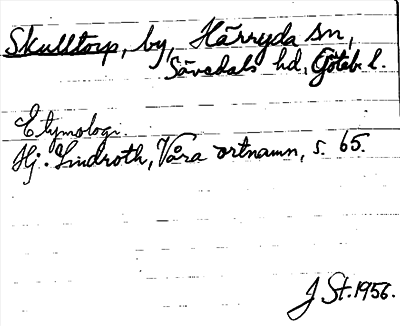 Skulltorp, by, Härryda sn,
Sävedals hd, Göteb. l.
Etymologi.
Hj. Lindroth, Våra ortnamn, s. 65.
J St. 1956.